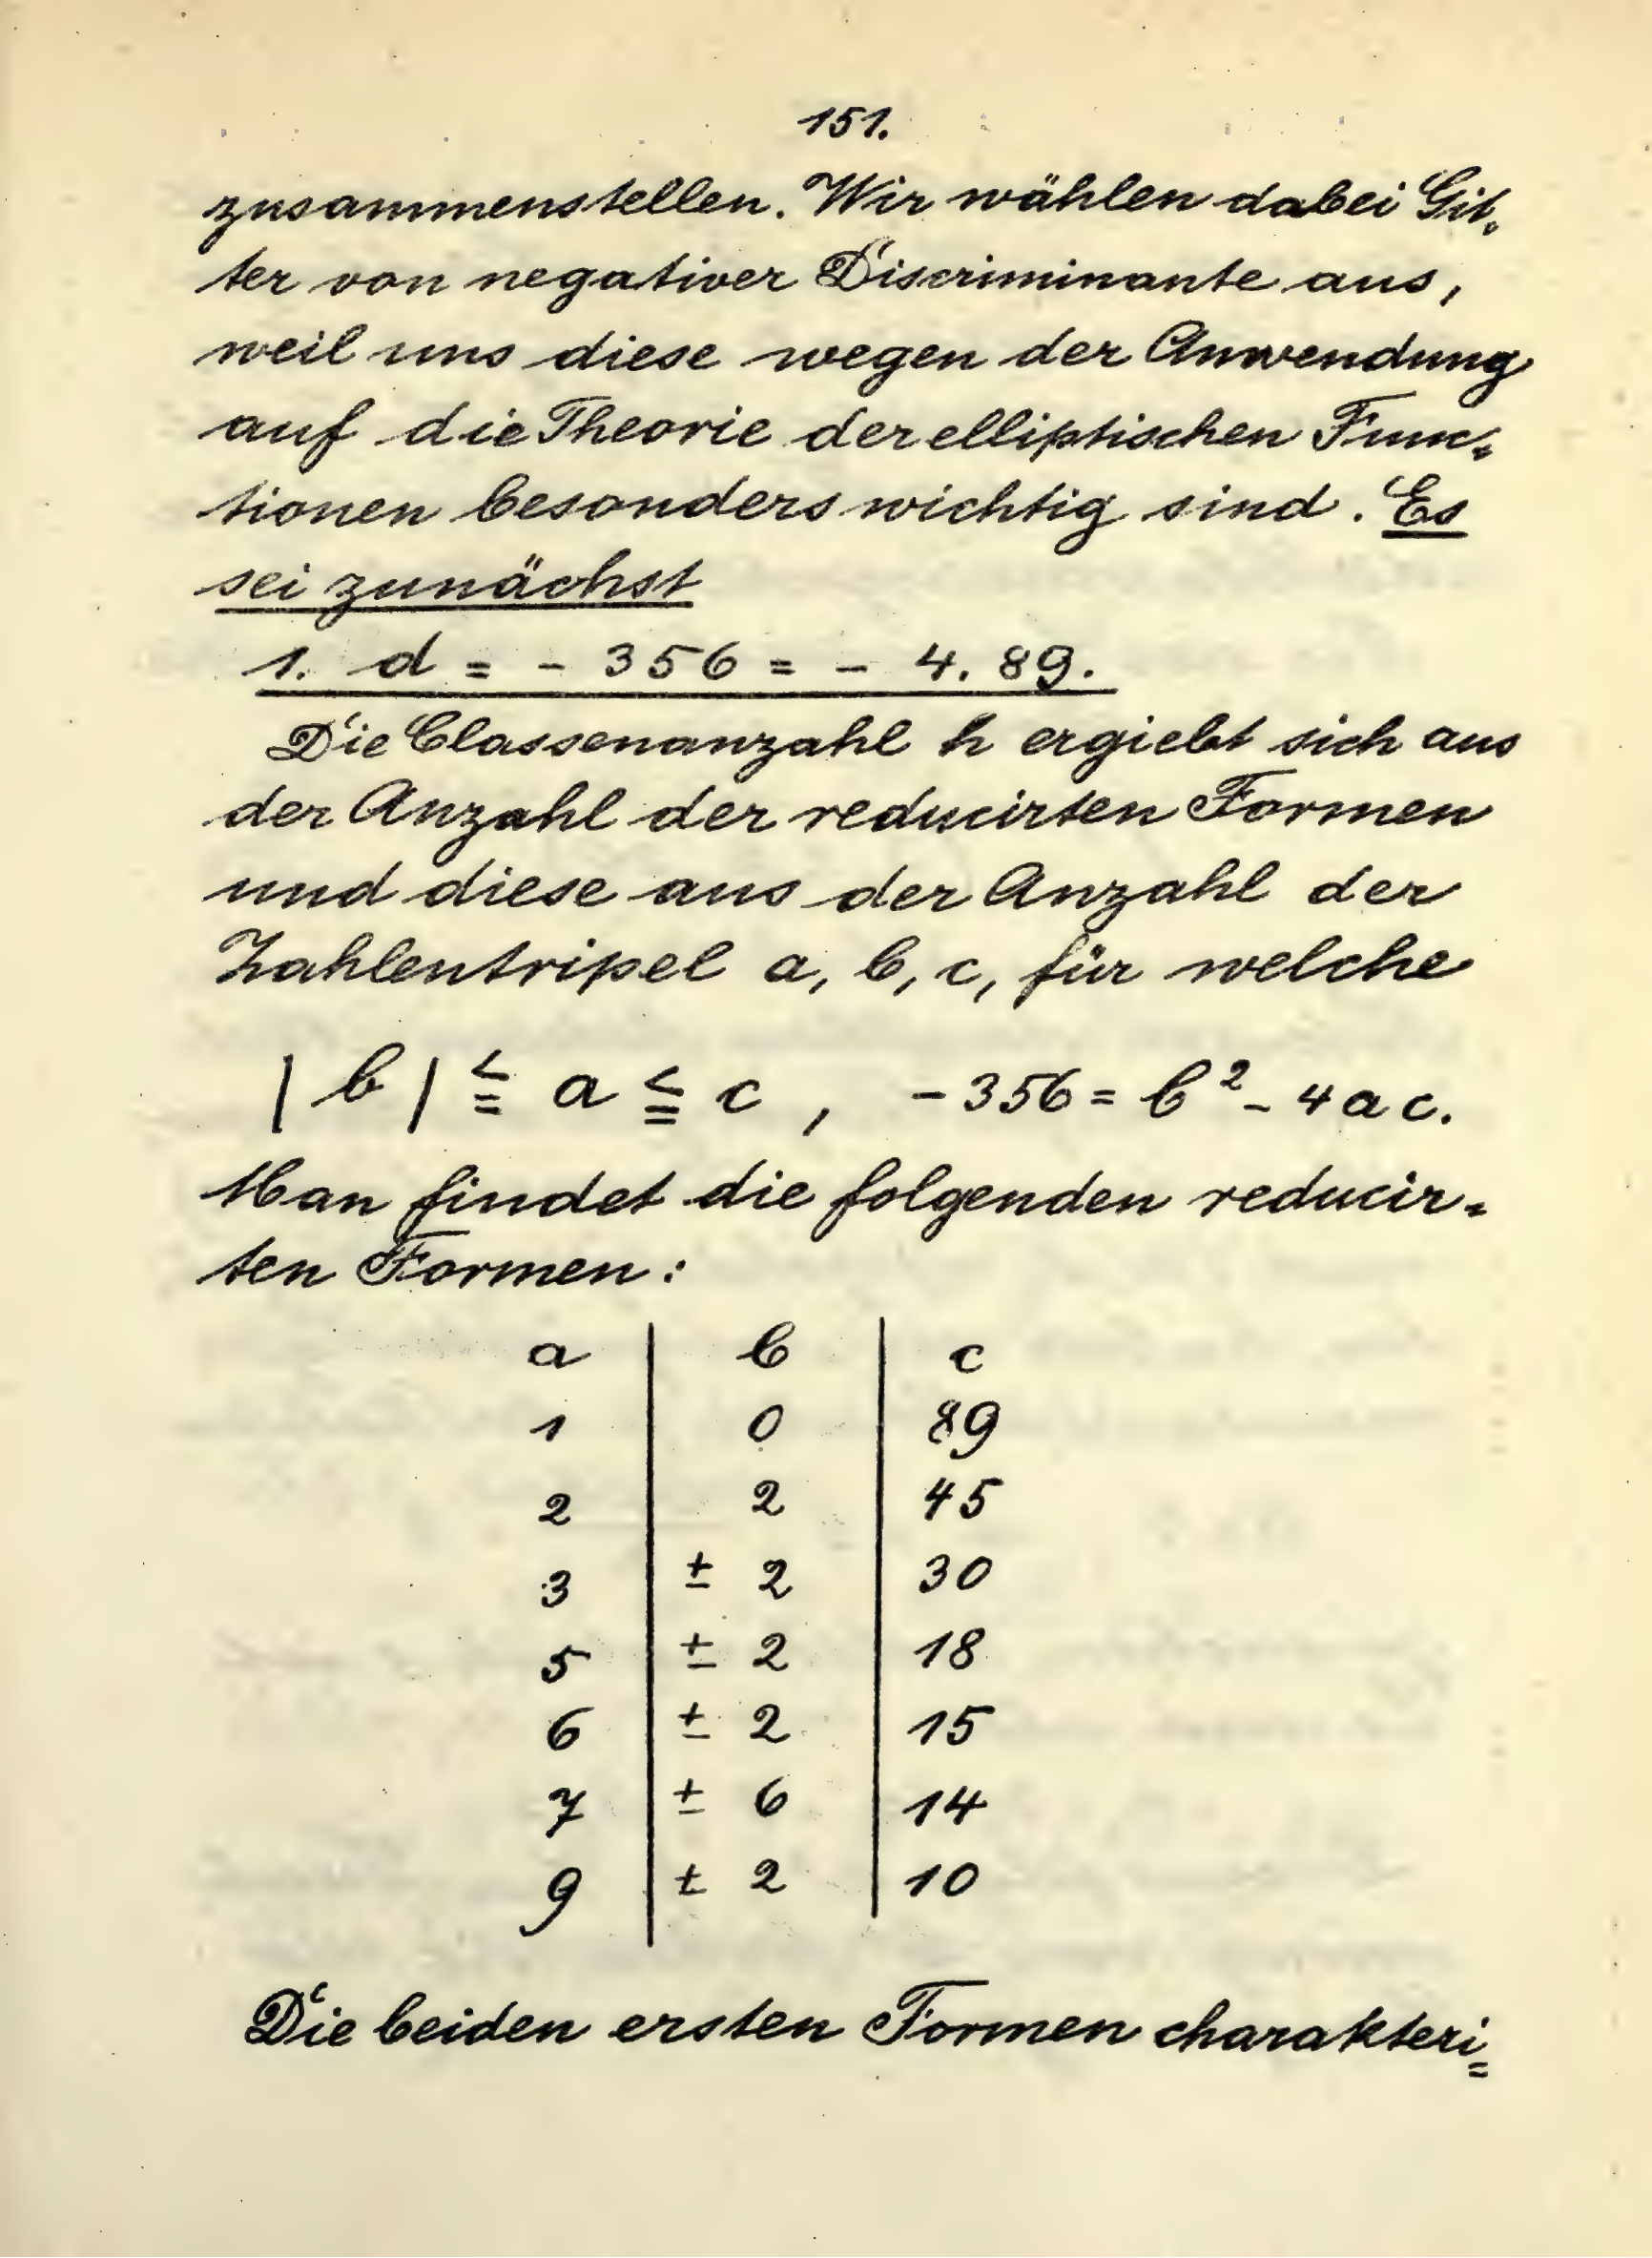 151.
zusammenstellen. Wir wählen dabei Git-
ter von negativer Discriminante aus,
weil uns diese wegen der Anwendung
auf die Theorie der elliptischen Func-
tionen besonders wichtig sind. Es
sei zunächst
1. d = - 356 = - 4. 89.
Die Classenanzahl h ergiebt sich aus
der Anzahl der reducirten Formen
und diese aus der Anzahl der
Zahlentripel a, b, c, für welche
|b| ≦ a ≦ c , -356 = b² - 4ac.
Man findet die folgenden reducir-
ten Formen:
a | b | c
1 | 0 | 89
2 | 2 | 45
3 | ± 2 | 30
5 | ± 2 | 18
6 | ± 2 | 15
7 | ± 6 | 14
9 | ± 2 | 10
Die beiden ersten Formen charakteri=